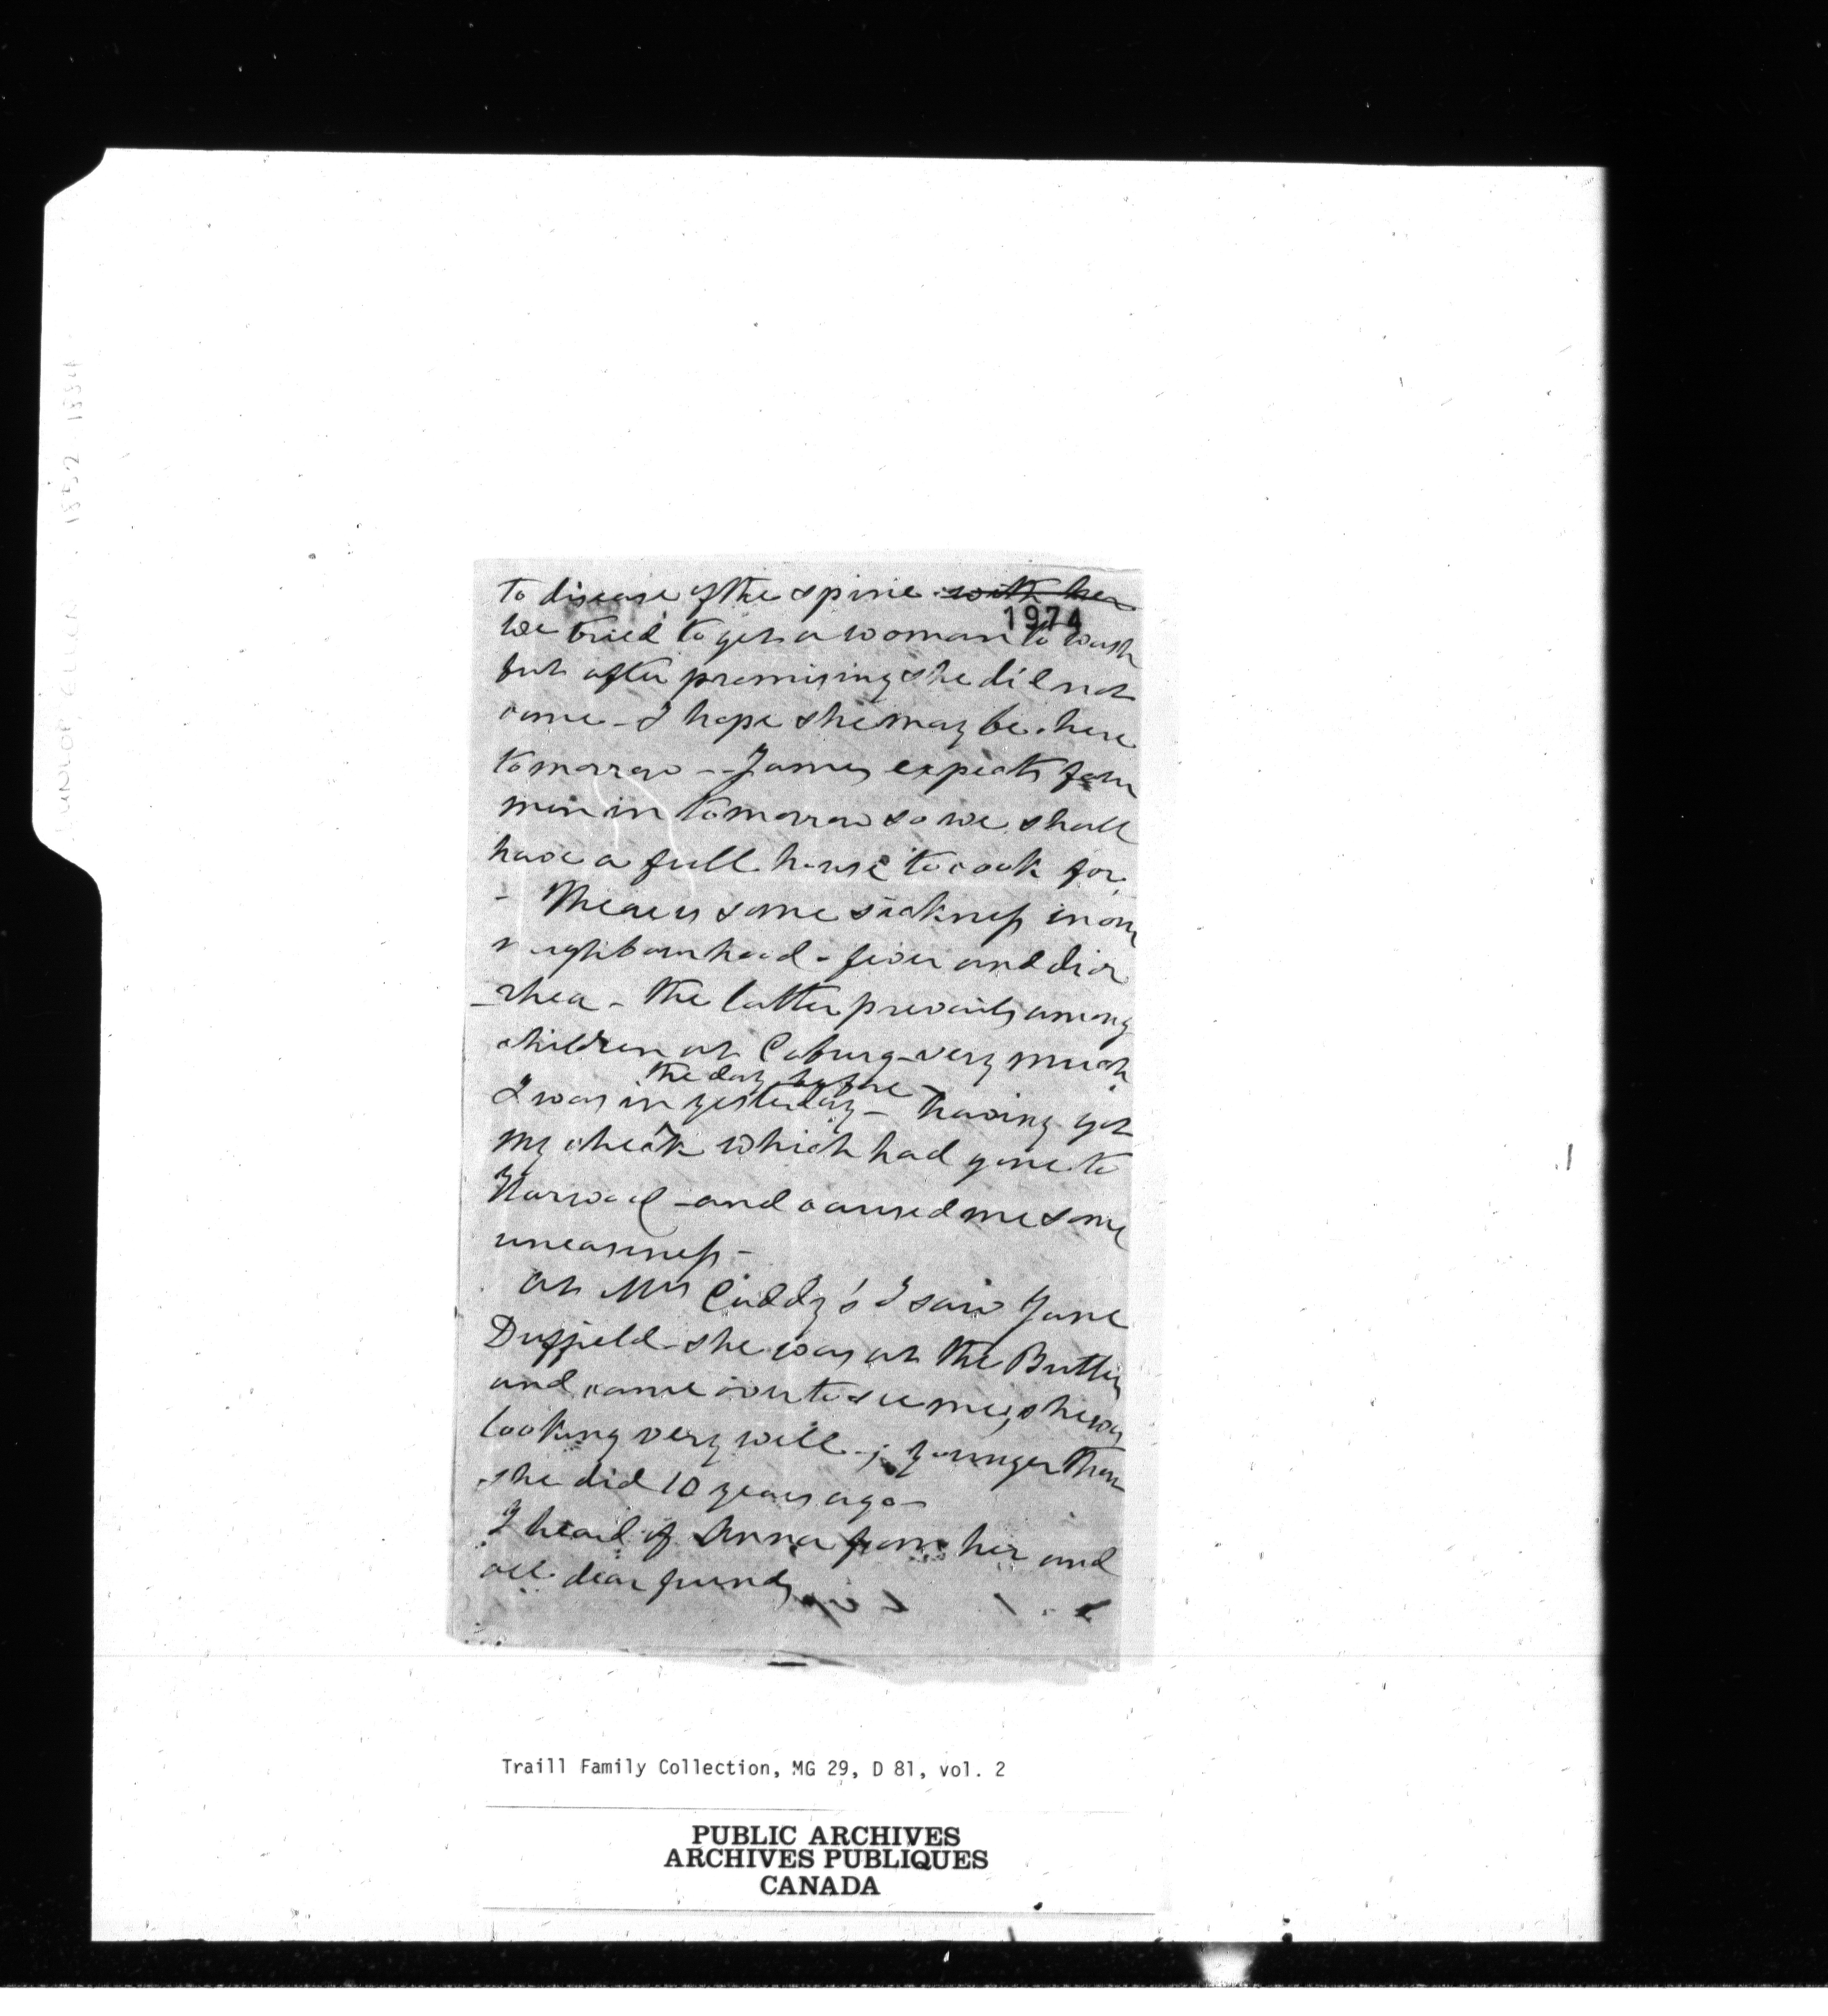 to disease of the spine with her
1974
We tried to get a woman to wash
but after promising she did not
come - I hope she may be here
tomorrow -- James expects four
men in tomorrow so we shall
have a full house to cook for.
- There is some sickness in our
neighbourhood - fever and diar
-rhea - the latter prevails among
children at Coburg - very much
the day before
I was in yesterday - having got
my check which had gone to
Norwood - and caused me some
uneasiness -
At Mrs Cuddy's I saw Jane
Duffield - she was at the Butlers
and came over to see me, she was
looking very well -; younger than
she did 10 years ago -
I heard of Anna from her and
all dear friends
Traill Family Collection, MG 29, D 81, vol. 2
PUBLIC ARCHIVES
ARCHIVES PUBLIQUES
CANADA